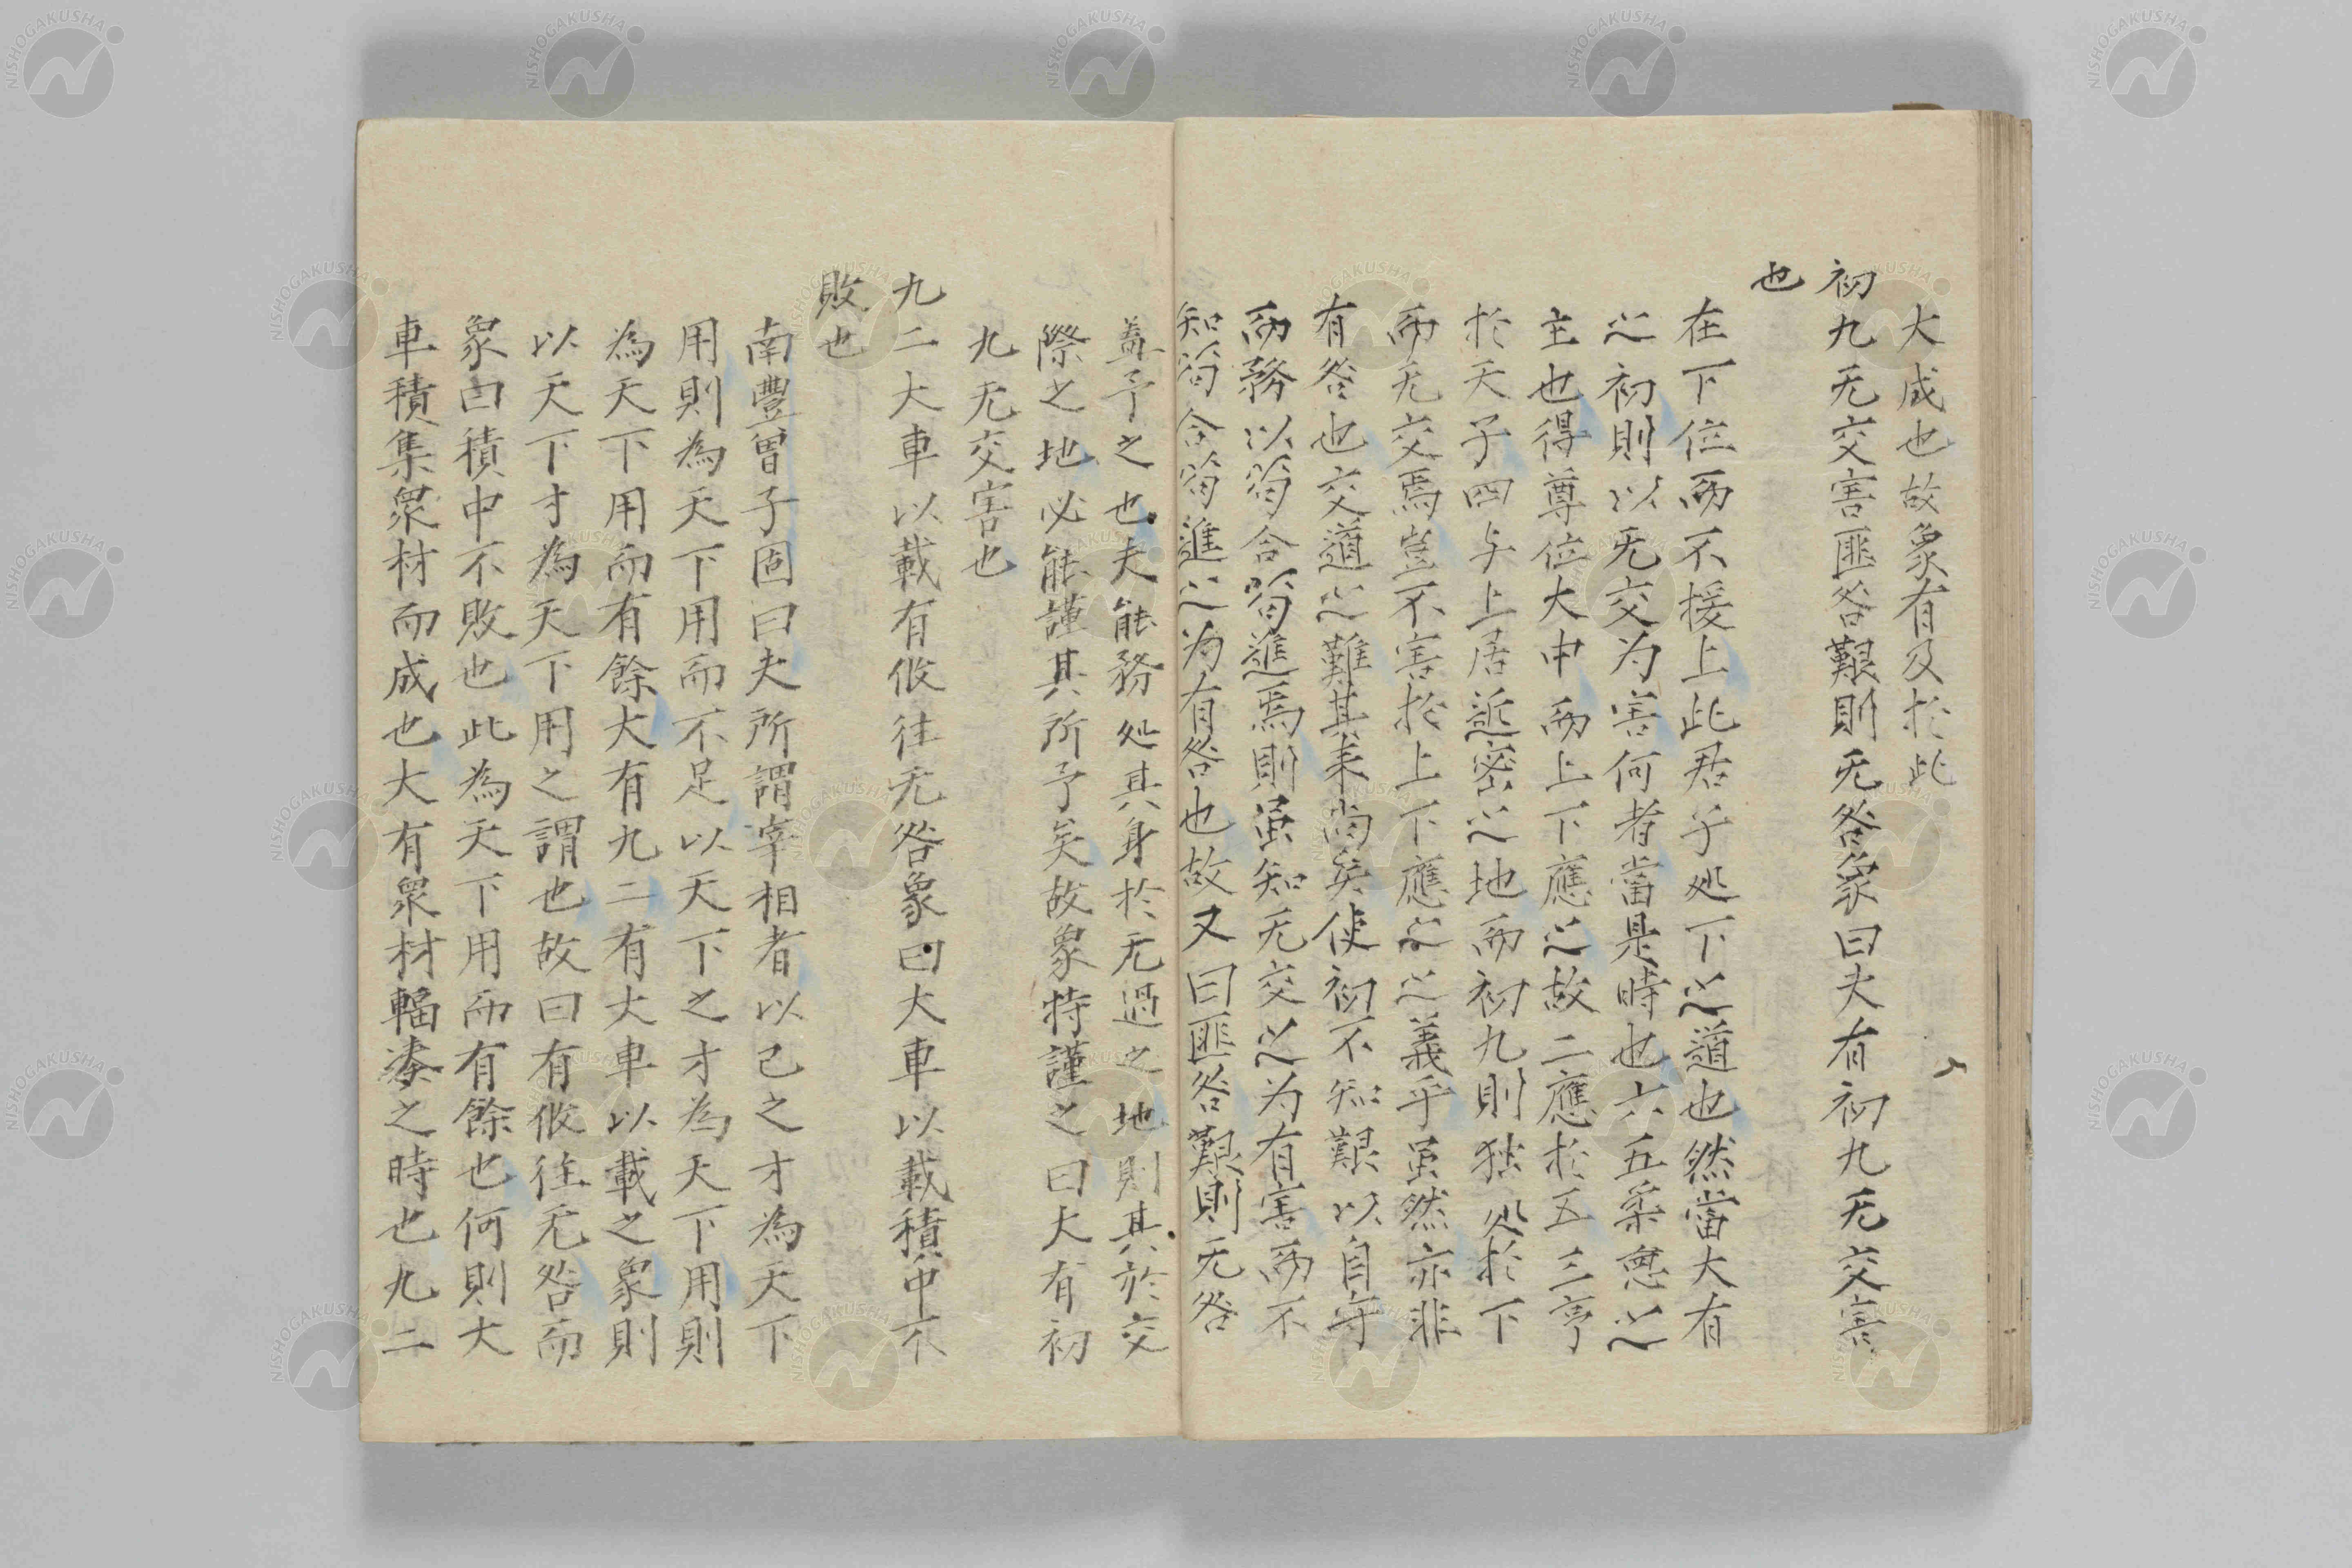 大成也故象有及於此
初九无交害匪咎艱則无咎象曰夫有初九无交害
也
在下位而不援上此君子処下之道也然當大有
之初則以无交为害何者當是時也六五柔悳之
主也得尊位大中而上下應之故二應於五三亨
於天子四与上居近密之地而初九則独処於下
而无交焉豈不害於上下應之之義乎虽然亦非
有咎也交道之難其来尚矣使初不知艱以自守
而務以苟合苟進焉則虽知无交之为有害而不
知苟合苟進之为有咎也故又曰匪咎艱則无咎
蓋予之也夫能務処其身於无過之地則其於交
際之地必能謹其所予矣故象特謹之曰大有初
九无交害也
九二大車以載有攸往无咎象曰大車以載積中不
敗也
南豐曾子固曰夫所謂宰相者以己之才為天下
用則為天下用而不足以天下之才為天下用則
為天下用而有餘大有九二有大車以載之象則
以天下才為天下用之謂也故曰有攸往无咎而
象曰積中不敗也此為天下用而有餘也何則大
車積集眾材而成也大有眾材輻湊之時也九二
NISHOGAKUSHA